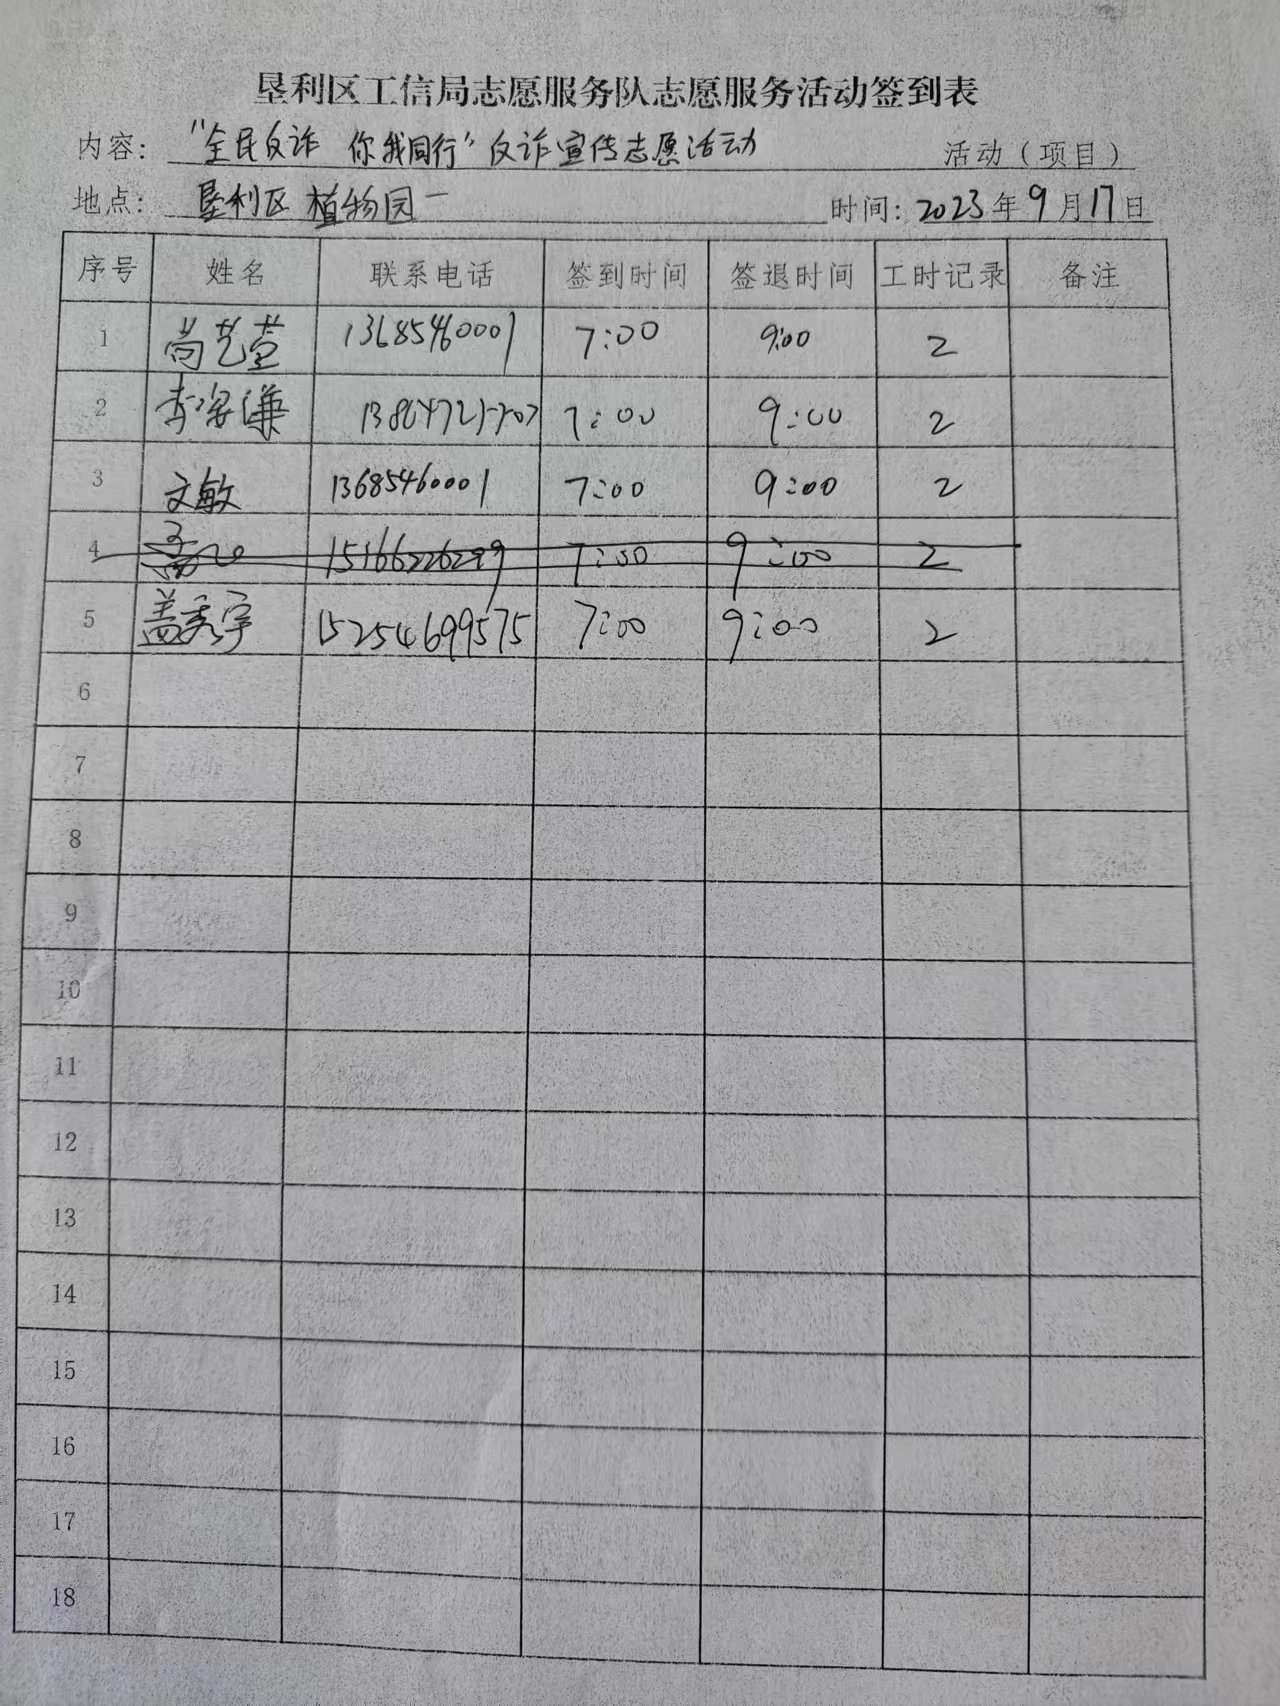 垦利区工信局志愿服务队志愿服务活动签到表
内容: "全民反诈 你我同行"反诈宣传志愿活动 活动（项目）
地点: 垦利区 植物园 时间: 2023年9月17日
序号 姓名 联系电话 签到时间 签退时间 工时记录 备注
1 尚艺萱 13685460001 7:00 9:00 2
2 7:00 9:00 2
3 文敏 13685460001 7:00 9:00 2
4 15166226299 7:00 9:00 2
5 盖秀宇 15254699575 7:00 9:00 2
6
7
8
9
10
11
12
13
14
15
16
17
18